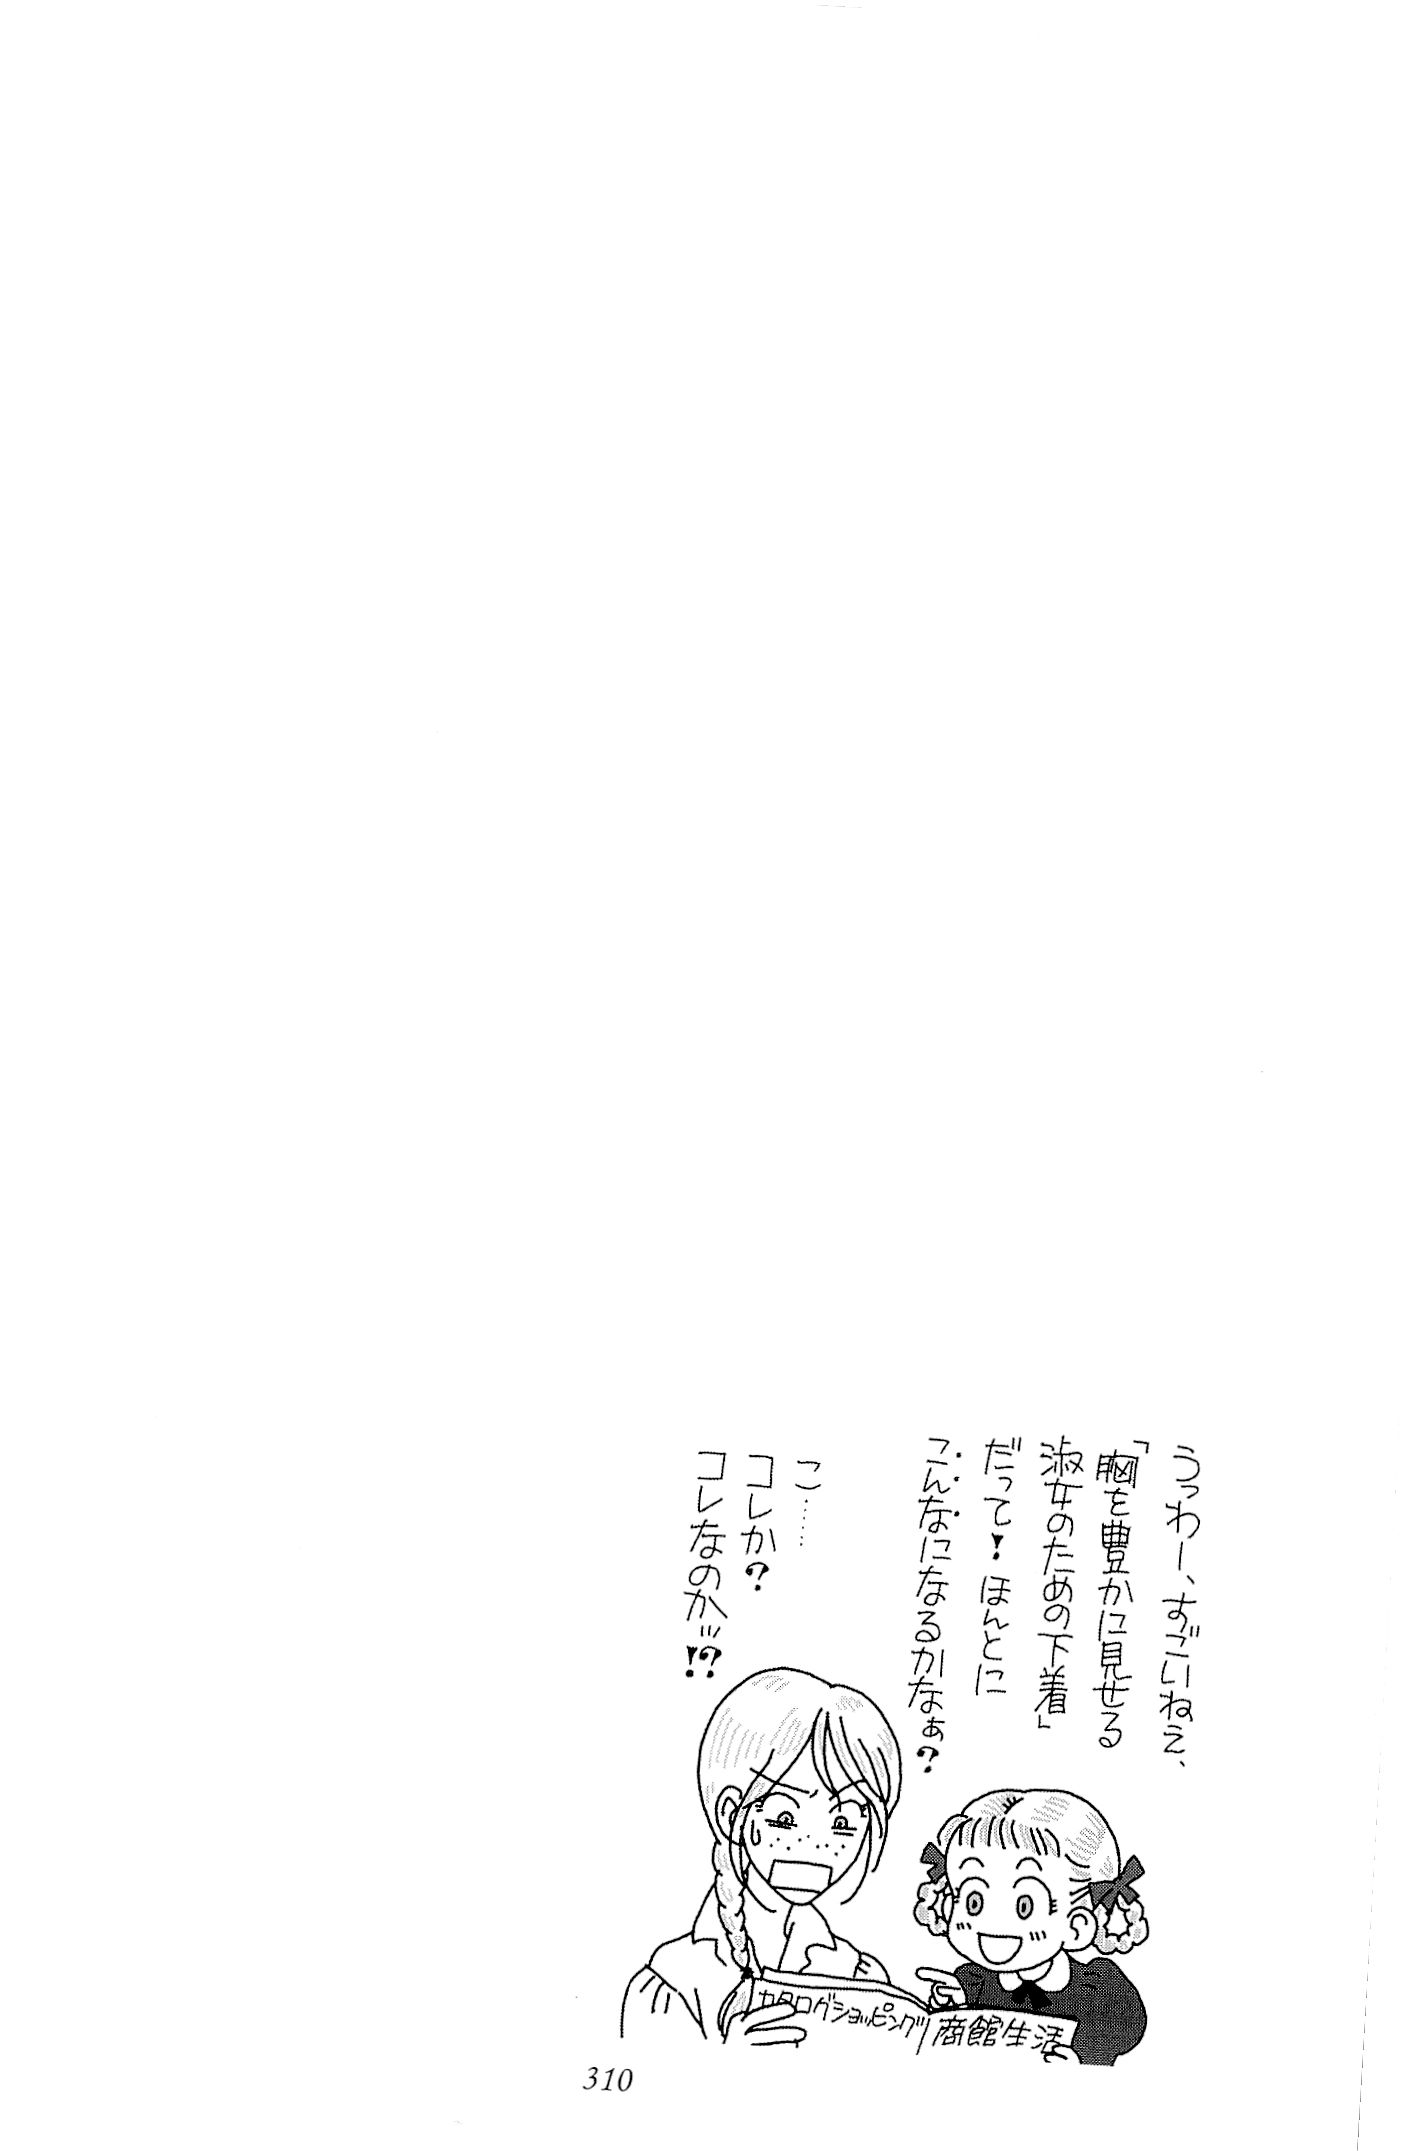 うっわー、すごいねえ、
「胸を豊かに見せる
淑女のための下着」
だって！ほんとに
こんなになるかなぁ？
こ……
コレか？
コレなのかッ!?
カタログショッピング
商館生活
310